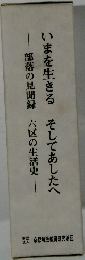 いまを生きる そしてあしたへ
―部落の見聞録 六区の生活史―